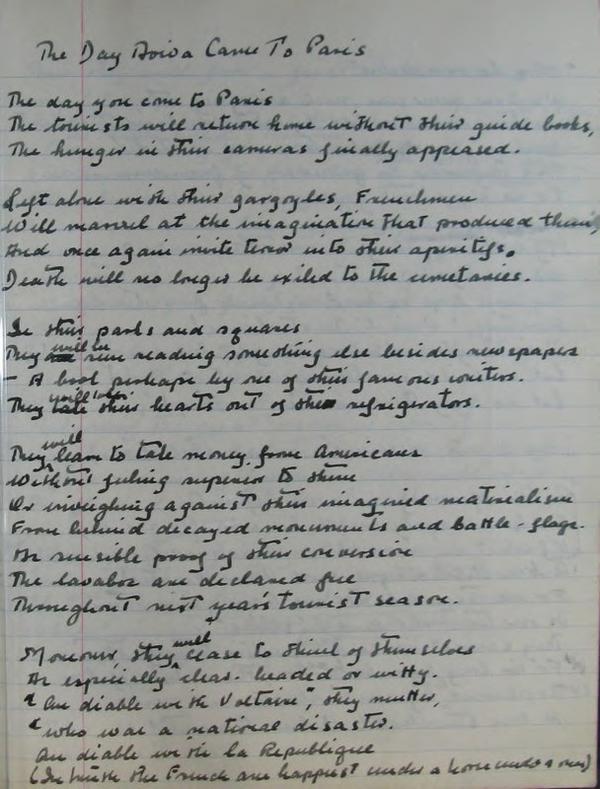 The Day Aviva Came To Paris
The day you come to Paris
The tourists will return home without their guide books,
The hunger in their cameras finally appeased.
Left alone with their gargoyles, Frenchmen
Will marvel at the imagination that produced them
And once again invite terror into their aperitifs.
Death will no longer be exiled to the cemetaries.
In their parks and squares
They will be seen reading something else besides newspapers
- A book perhaps by one of their famous writers.
They will take their hearts out of the refrigerators.
They will learn to take money from Americans
Without feeling superior to them
Or inveighing against their imagined materialism
From behind decayed monuments and battle-flags.
As sensible proof of their conversion
The lavabos are declared free
Throughout next year's tourist season.
Moreover they will cease to think of themselves
As especially clear-headed or witty.
"Au diable with Voltaire", they mutter,
"who was a national disaster.
Au diable with la Republique
(In truth the French are happiest under a horse under a man)